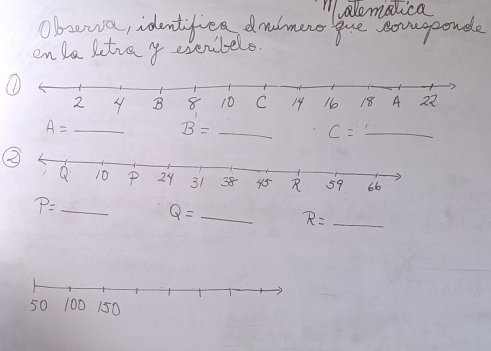 Matemática
Observa, identifica el número que corresponde
en la letra y escríbelo.
① 2 4 B 8 10 C 14 16 18 A 22
A = ____ B = ____ C = ____
② Q 10 P 24 31 38 45 R 59 66
P = ____ Q = ____ R = ____
50 100 150